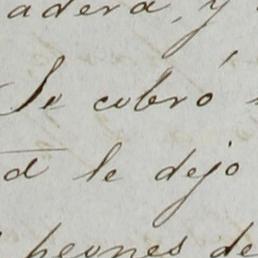 adera, y
Se cobró
d le dejo
peones de